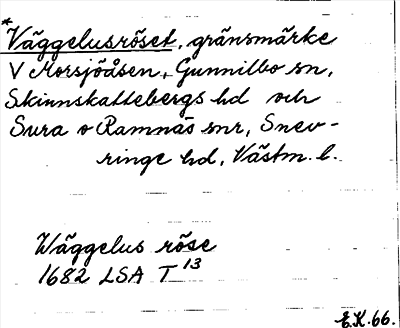 *Väggelusröset, gränsmärke
V Morsjöåsen, Gunnilbo sn,
Skinnskattebergs hd och
Sura o Ramnäs snr, Snev-
ringe hd, Västm. l.
Wäggelus röse
1682 LSA T 13
E.K. 66.